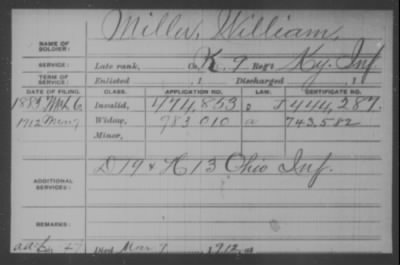 Miller, William,
NAME OF SOLDIER:
SERVICE: Late rank, Co. K, 7 Reg't Ky. Inf
TERM OF SERVICE: Enlisted , 1 Discharged , 1
DATE OF FILING. CLASS. APPLICATION NO. LAW. CERTIFICATE NO.
1889 Mch 6 Invalid, 774,853 J 444,287.
1912 Widow, 983 010 a 743,582
Minor,
D 19 & H 13 Ohio Inf.
ADDITIONAL SERVICES:
REMARKS:
Died Mar 7 1912, at